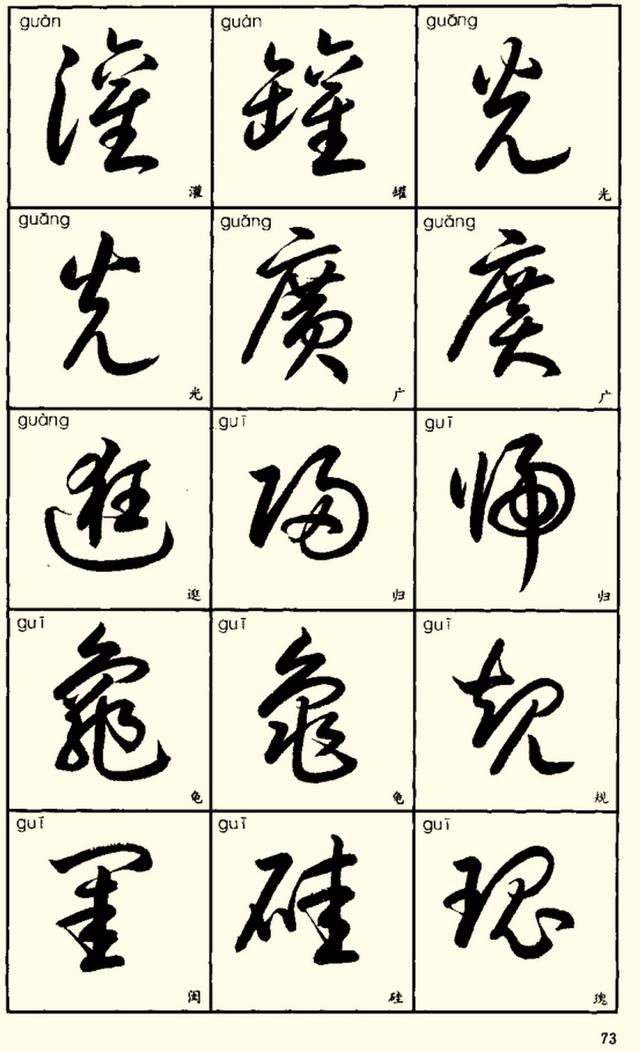 guàn guàn guāng
灌 罐 光
灌 罐 光
guāng guǎng guǎng
光 廣 廣
光 广 广
guàng guī guī
逛 归 归
逛 归 归
guī guī guī
龜 龜 规
龟 龟 规
guī guī guī
闺 硅 瑰
闺 硅 瑰
73